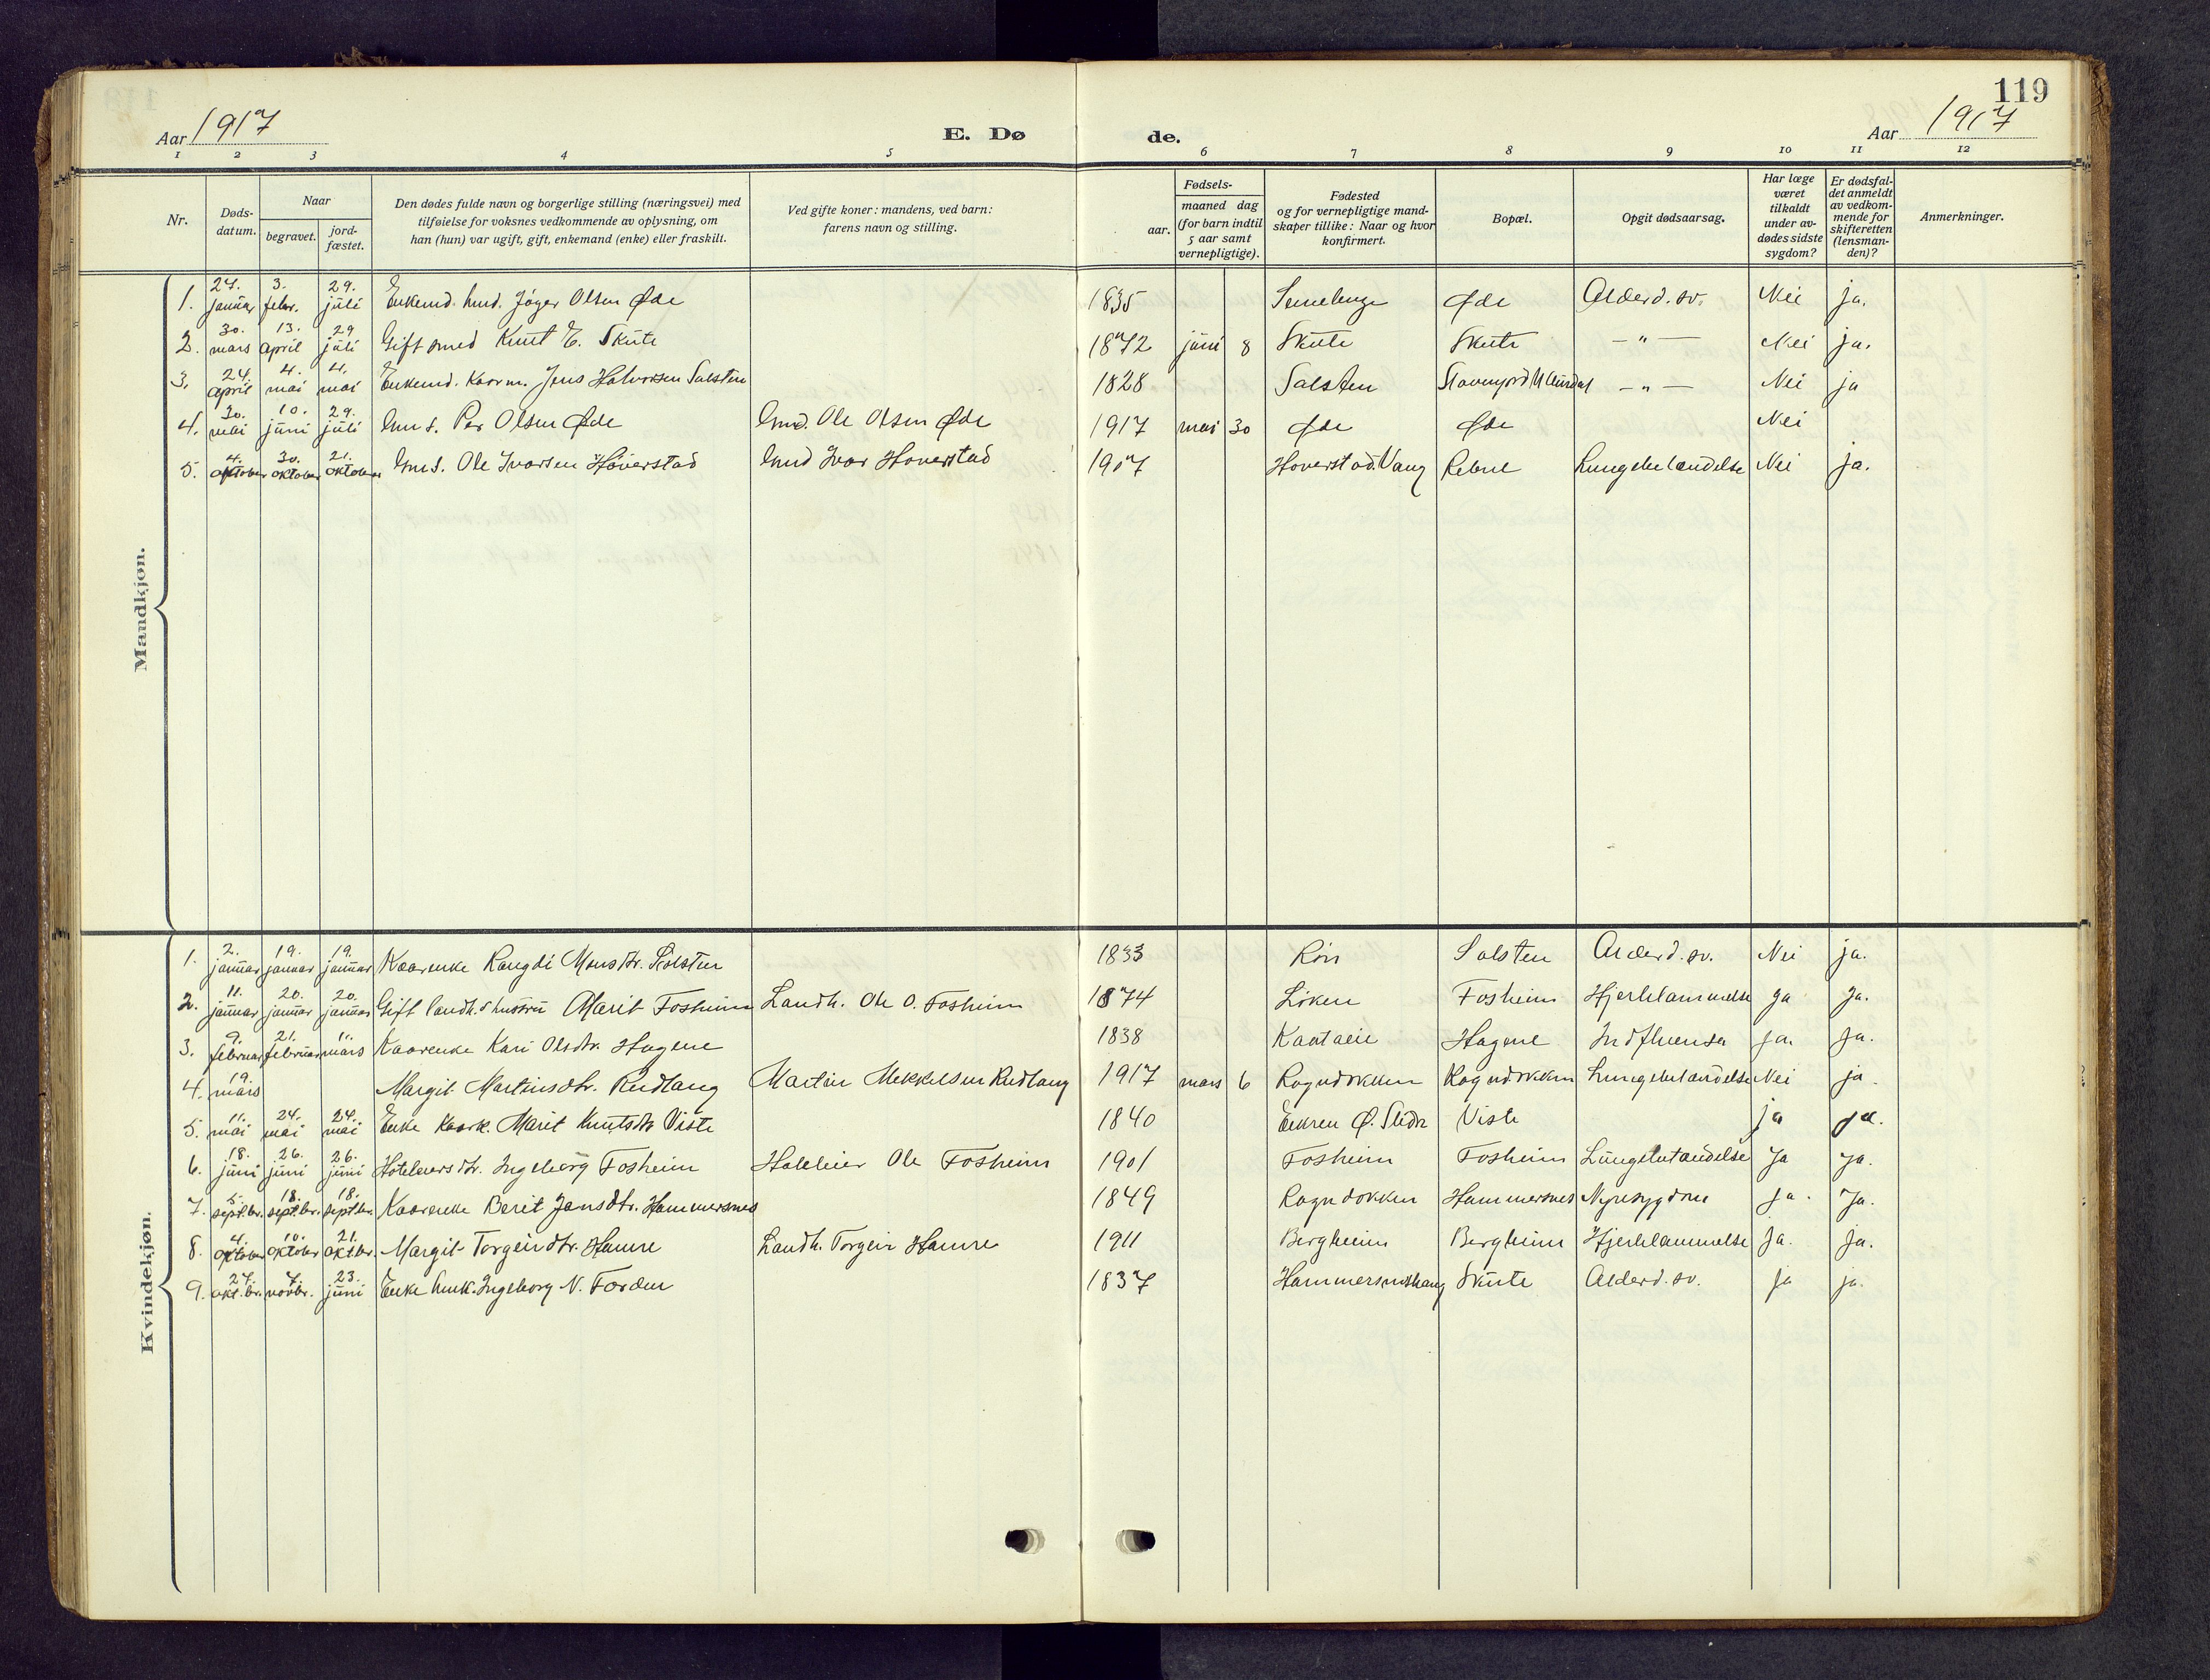 119
Aar 1917
E. Dø de.
Aar 1917
1 2 3 4 5 6 7 8 9 10 11 12
Nr.
Døds-datum.
Naar
begravet.
jord-fæstet.
Den dødes fulde navn og borgerlige stilling (næringsvei) med tilføielse for voksnes vedkommende av oplysning, om han (hun) var ugift, gift, enkemand (enke) eller fraskilt.
Ved gifte koner: mandens, ved barn: farens navn og stilling.
Fødsels-
aar.
maaned dag (for barn indtil 5 aar samt vernepligtige).
Fødested og for vernepligtige mandskaper tillike: Naar og hvor konfirmert.
Bopæl.
Opgit dødsaarsag.
Har læge været tilkaldt under avdødes sidste sygdom?
Er dødsfaldet anmeldt av vedkommende for skifteretten (lensmanden)?
Anmerkninger.
Mandkjøn.
1. 27. januar 3. febr. 29. juli Enkemd. Olsen Øde 1835 Øde Alderd. sv. Nei ja.
2. 30. mars 13. april 29 juli Gift Knut E. Skute 1872 juni 8 Skute Skute — " — Nei ja.
3. 24. april 4. mai 4. mai Enkemd. Kaarm. Jens Halvorsen Salsten 1828 Salsten — " — Nei ja
4. 30. mai 10. juni 29. juli Gms. Per Olsen Øde Gmd. Ole Olsen Øde 1917 mai 30 Øde Øde Nei
5. 4. oktober 30. oktober 21. oktober Gms. Ole Ivarsen Høverstad Gmd Ivar Hoverstad 1907 Hoverstad. Vang Lungebetændelse Nei ja.
Kvindekjøn.
1. 2. januar 19. januar 19. januar Kaarenke Rangdi Monsdtr. Salsten 1833 Røn Salsten Alderd. sv. Nei ja.
2. 11. januar 20. januar 20. januar Gift landh.s hustru Marit Fosheim Landh. Ole O. Fosheim 1874 Løken Fosheim Hjertelammelse ja ja.
3. 9. februar 21. februar 11. mars Kaarenke Kari Olsdtr. Hagene 1838 Hagene Indfluensa ja. ja.
4. 19. mars Margit Martinsdtr. Rudlang Martin Mekkelsen Rudlang 1917 mars 6 Rogndokken Rogndokken Lungebetændelse Nei ja.
5. 11. mai 24. mai 24. mai Enke Kaark. Marit Knutsdtr Viste 1840 Ø. Slidre Viste ja ja.
6. 18. juni 26. juni 26. juni Hoteleiersdtr. Ingeborg Fosheim Hoteleier Ole Fosheim 1901 Fosheim Fosheim Lungebetændelse ja ja.
7. 5. septbr. 18. septbr. 18. septbr. Kaarenke Berit Jensdtr. Hammersnes 1849 Rogndokken Hammersnes Nyresygdom ja. ja.
8. 4. oktober 10. oktober 21. oktbr. Margit Torgeirdtr. Hamre Landh. Torgeir Hamre 1911 Bergheim Bergheim Hjertelammelse ja. ja.
9. 27. okt.br. 7. novbr. 23. juni Enke Gmk. Ingeborg N. Forden 1837 Hammersneshaug Skute Alderd. sv. ja ja.